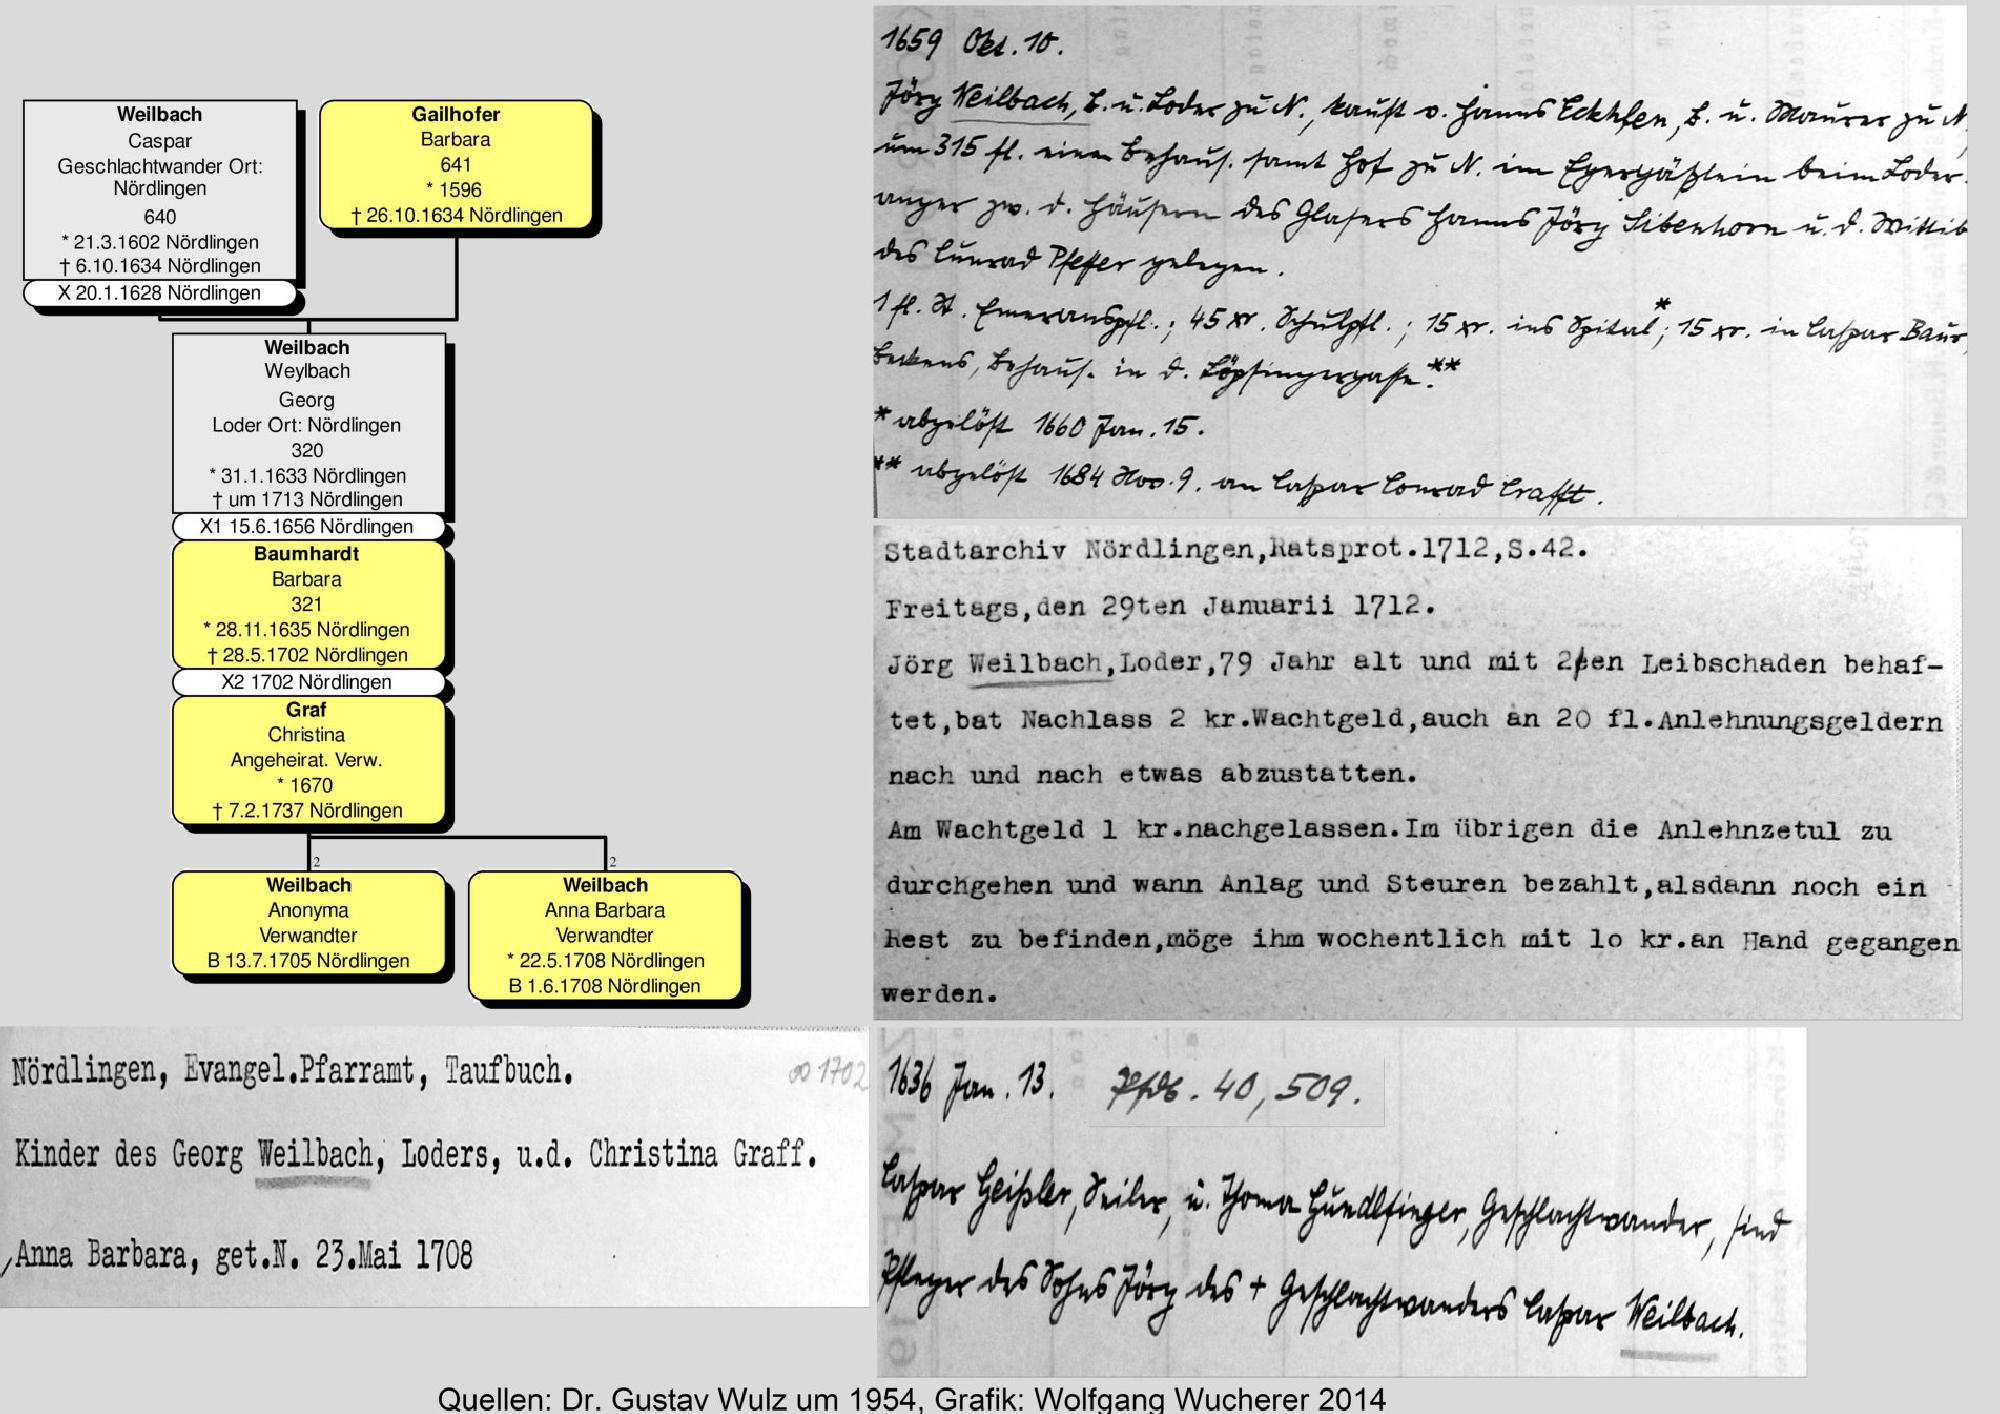 Weilbach
Caspar
Geschlachtwander Ort:
Nördlingen
640
* 21.3.1602 Nördlingen
† 6.10.1634 Nördlingen
X 20.1.1628 Nördlingen
Gailhofer
Barbara
641
* 1596
† 26.10.1634 Nördlingen
Weilbach
Weylbach
Georg
Loder Ort: Nördlingen
320
* 31.1.1633 Nördlingen
† um 1713 Nördlingen
X1 15.6.1656 Nördlingen
Baumhardt
Barbara
321
* 28.11.1635 Nördlingen
† 28.5.1702 Nördlingen
X2 1702 Nördlingen
Graf
Christina
Angeheirat. Verw.
* 1670
† 7.2.1737 Nördlingen
2
2
Weilbach
Anonyma
Verwandter
B 13.7.1705 Nördlingen
Weilbach
Anna Barbara
Verwandter
* 22.5.1708 Nördlingen
B 1.6.1708 Nördlingen
1659 Okt. 10.
Jörg Weilbach, B. u. Loder zu N., kauft v. Hanns Eckhlen, B. u. Maurer zu N.
um 315 fl. eine Behaus. samt Hof zu N. im Egergäßlein beim Loder-
anger zw. d. Häusern des Glasers Hanns Jörg Sibenhorn u. d. Wittib
des Cunrad Pfeffer gelegen.
1 fl. St. Emeranspfl.; 45 xr. Schulpfl.; 15 xr. ins Spital*; 15 xr. in Caspar Baur,
Beckens, Behaus. in d. Löpsingergasse.**
* abgelöst 1660 Jan. 15.
** abgelöst 1684 Nov. 9. an Caspar Conrad Crafft.
Stadtarchiv Nördlingen,Ratsprot.1712,S.42.
Freitags,den 29ten Januarii 1712.
Jörg Weilbach,Loder,79 Jahr alt und mit 2en Leibschaden behaf-
tet,bat Nachlass 2 kr.Wachtgeld,auch an 20 fl.Anlehnungsgeldern
nach und nach etwas abzustatten.
Am Wachtgeld 1 kr.nachgelassen.Im übrigen die Anlehnzetul zu
durchgehen und wann Anlag und Steuren bezahlt,alsdann noch ein
Rest zu befinden,möge ihm wochentlich mit 1o kr.an Hand gegangen
werden.
Nördlingen, Evangel.Pfarramt, Taufbuch.
∞ 1702
Kinder des Georg Weilbach, Loders, u.d. Christina Graff.
Anna Barbara, get.N. 23.Mai 1708
1636 Jan. 13. Pfdb. 40, 509.
Caspar Geißler, Seiler, u. Thoma Hundlfinger, Geschlachtwander, sind
Pfleger des Sohns Jörg des + Geschlachtwanders Caspar Weilbach.
Quellen: Dr. Gustav Wulz um 1954, Grafik: Wolfgang Wucherer 2014